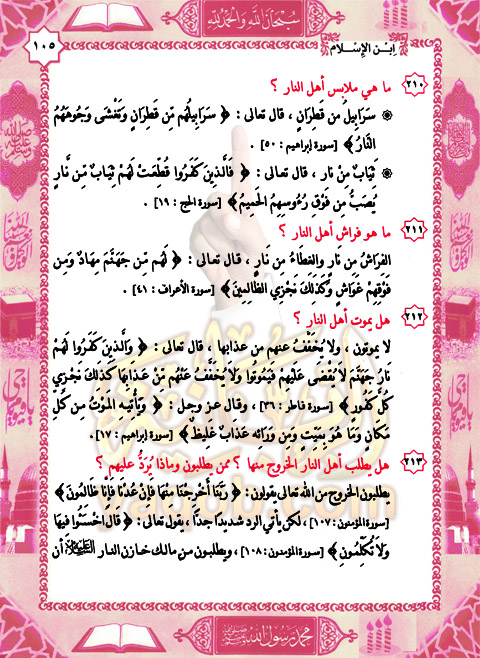 سبحان الله والحمد لله
١٠٥
ابن الإسلام
٢١٠ ما هي ملابس أهل النار ؟
❁ سَرَابِيلُ من قَطِرَانٍ ، قال تعالى : ﴿ سَرَابِيلُهُم مِّن قَطِرَانٍ وَتَغْشَى وُجُوهَهُمُ
النَّارُ ﴾ [سورة إبراهيم : ٥٠] .
❁ ثِيَابٌ مِنْ نارٍ ، قال تعالى : ﴿ فَالَّذِينَ كَفَرُوا قُطِّعَتْ لَهُمْ ثِيَابٌ مِّن نَّارٍ
يُصَبُّ مِن فَوْقِ رُءُوسِهِمُ الحَمِيمُ ﴾ [سورة الحج : ١٩] .
٢١١ ما هو فراش أهل النار ؟
الفِرَاشُ مِن نارٍ والغِطَاءُ من نَارٍ ، قال تعالى : ﴿ لَهُم مِّن جَهَنَّمَ مِهَادٌ وَمِن
فَوْقِهِمْ غَوَاشٍ وَكَذَلِكَ نَجْزِي الظَّالِمِينَ ﴾ [سورة الأعراف : ٤١] .
٢١٢ هل يموت أهل النار ؟
لا يموتون ، ولا يُخَفَّفُ عنهم من عذابها ، قال تعالى : ﴿ وَالَّذِينَ كَفَرُوا لَهُمْ
نَارُ جَهَنَّمَ لاَ يُقْضَى عَلَيْهِمْ فَيَمُوتُوا وَلاَ يُخَفَّفُ عَنْهُم مِّنْ عَذَابِهَا كَذَلِكَ نَجْزِي
كُلَّ كَفُورٍ ﴾ [سورة فاطر : ٣٦] ، وقال عز وجل : ﴿ وَيَأْتِيهِ الْمَوْتُ مِن كُلِّ
مَكَانٍ وَمَا هُوَ بِمَيِّتٍ وَمِن وَرَائِهِ عَذَابٌ غَلِيظٌ ﴾ [سورة إبراهيم : ١٧] .
٢١٣ هل يطلب أهل النار الخروج منها ؟ ممن يطلبون وماذا يُرَدُّ عليهم ؟
يطلبون الخروج من الله تعالى يقولون : ﴿ رَبَّنَا أَخْرِجْنَا مِنْهَا فَإِنْ عُدْنَا فَإِنَّا ظَالِمُونَ ﴾
[سورة المؤمنون : ١٠٧] ، لكن يأتي الرد شديدًا جدًّا ، يقول تعالى : ﴿ قَالَ اخْسَئُوا فِيهَا
وَلاَ تُكَلِّمُونِ ﴾ [سورة المؤمنون : ١٠٨] ، ويطلبون من مالك خازن النار عليه السلام أن
محمد رسول الله ﷺ